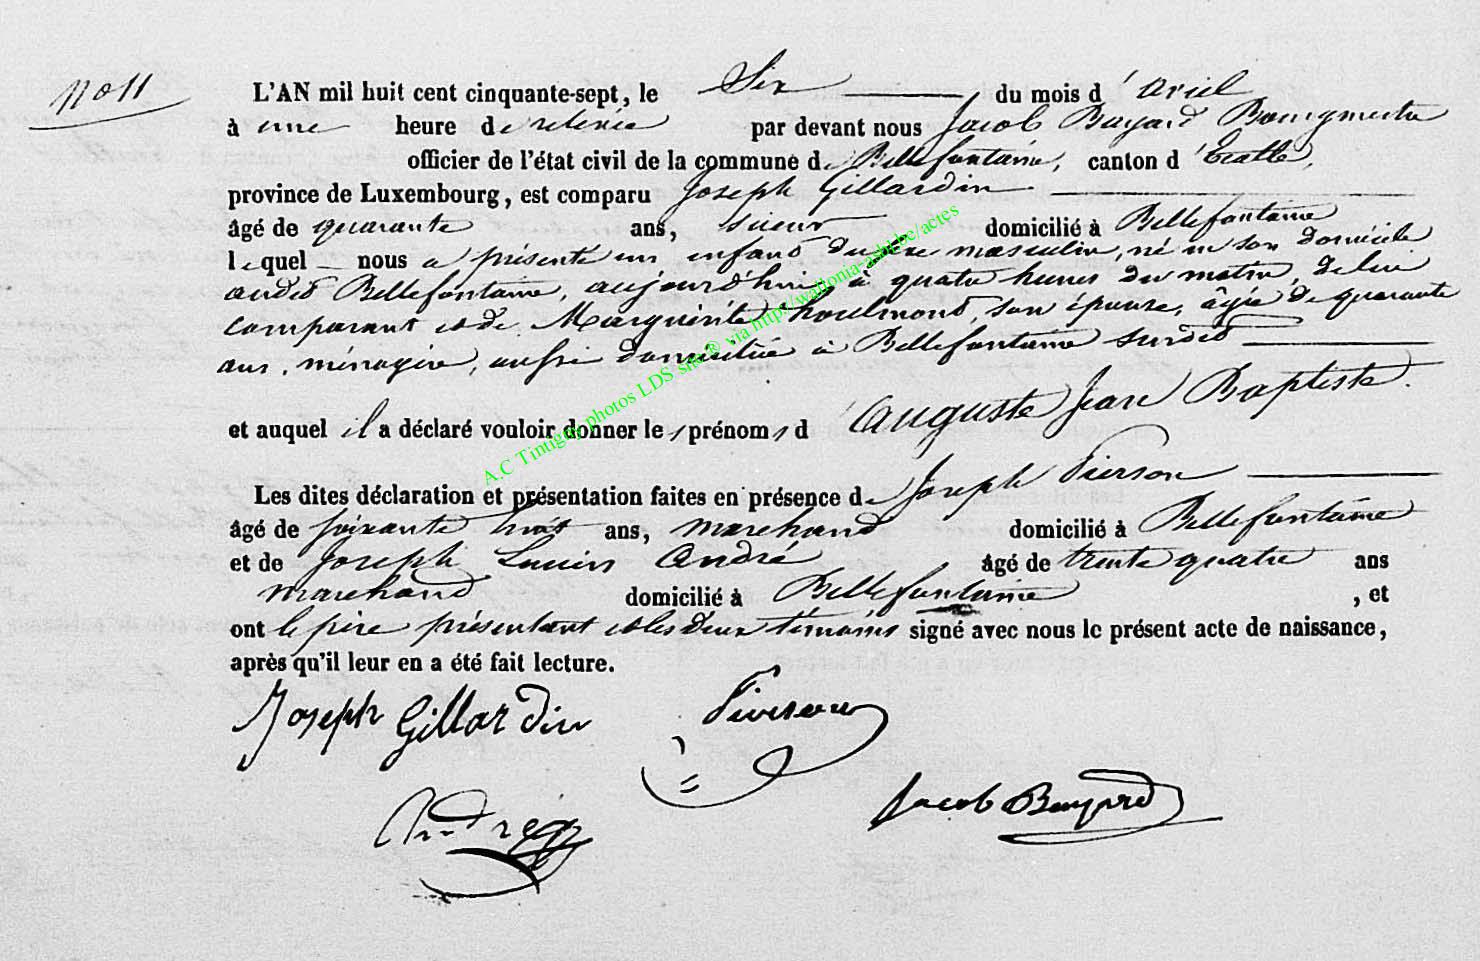 no 11
L'AN mil huit cent cinquante-sept, le Six du mois d'avril
à une heure de relevée par devant nous Jacob Bayard Bourgmestre
officier de l'état civil de la commune de Bellefontaine, canton d'Etalle,
province de Luxembourg, est comparu Joseph Gillardin
âgé de quarante ans, sieur domicilié à Bellefontaine
lequel nous a présenté un enfant du sexe masculin, né en son domicile
audit Bellefontaine, aujourd'hui, à quatre heures du matin, de lui
comparant et de Marguerite houlmont, son épouse, âgée de quarante
ans, ménagère, aussi domiciliée à Bellefontaine susdit
et auquel il a déclaré vouloir donner les prénoms d'Auguste Jean Baptiste.
Les dites déclaration et présentation faites en présence de Joseph Pierson
âgé de soixante huit ans, marchand domicilié à Bellefontaine
et de Joseph Lucien André âgé de trente quatre ans
marchand domicilié à Bellefontaine, et
ont le père présentant et les deux témoins signé avec nous le présent acte de naissance,
après qu'il leur en a été fait lecture.
Joseph Gillardin Pierson
André Jacob Bayard
A.C Tintigny photos LDS site® via http://wallonia-asbl.be/actes